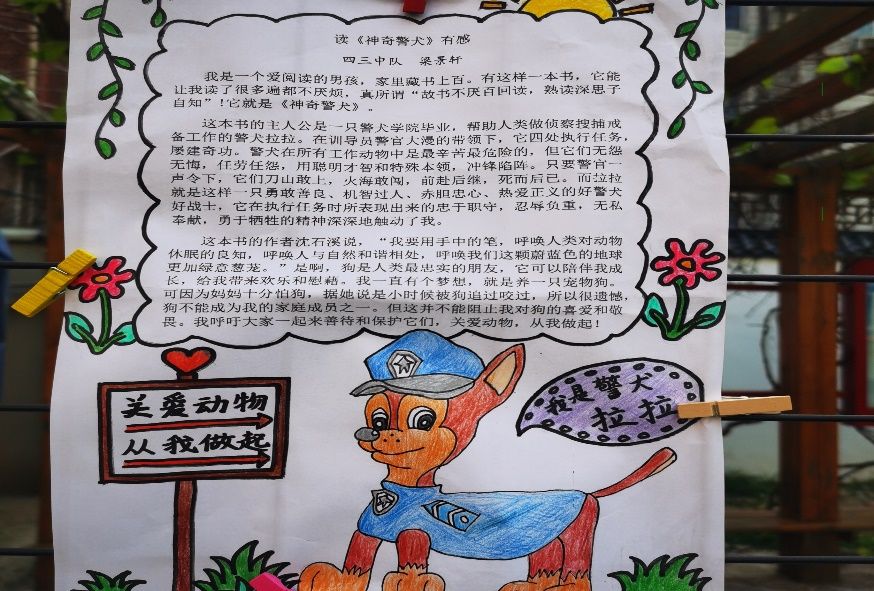 读《神奇警犬》有感
四三中队 梁景轩
我是一个爱阅读的男孩，家里藏书上百。有这样一本书，它能
让我读了很多遍都不厌烦，真所谓“故书不厌百回读，熟读深思子
自知”！它就是《神奇警犬》。
这本书的主人公是一只警犬学院毕业，帮助人类做侦察搜捕戒
备工作的警犬拉拉。在训导员警官大漫的带领下，它四处执行任务，
屡建奇功。警犬在所有工作动物中是最辛苦最危险的，但它们无怨
无悔，任劳任怨，用聪明才智和特殊本领，冲锋陷阵。只要警官一
声令下，它们刀山敢上，火海敢闯，前赴后继，死而后已。而拉拉
就是这样一只勇敢善良、机智过人、赤胆忠心、热爱正义的好警犬
好战士，它在执行任务时所表现出来的忠于职守，忍辱负重，无私
奉献，勇于牺牲的精神深深地触动了我。
这本书的作者沈石溪说，“我要用手中的笔，呼唤人类对动物
休眠的良知，呼唤人与自然和谐相处，呼唤我们这颗蔚蓝色的地球
更加绿意葱茏。”是啊，狗是人类最忠实的朋友，它可以陪伴我成
长，给我带来欢乐和慰藉。我一直有个梦想，就是养一只宠物狗。
可因为妈妈十分怕狗，据她说是小时候被狗追过咬过，所以很遗憾，
狗不能成为我的家庭成员之一。但这并不能阻止我对狗的喜爱和敬
畏。我呼吁大家一起来善待和保护它们，关爱动物，从我做起！
关爱动物
从我做起
我是警犬
拉拉